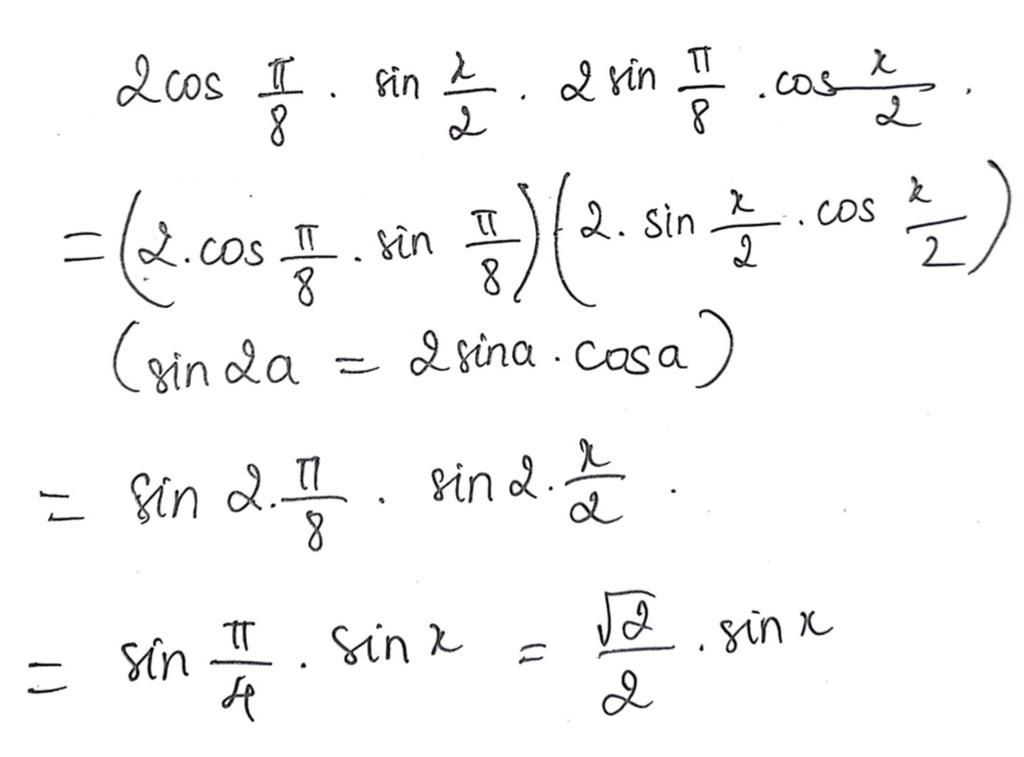 2cos π/8 . sin x/2 . 2 sin π/8 . cos x/2 .
= (2.cos π/8 . sin π/8)(2. sin x/2 . cos x/2)
(sin 2a = 2 sina . cosa)
= sin 2.π/8 . sin 2.x/2 .
= sin π/4 . sin x = √2/2 . sin x